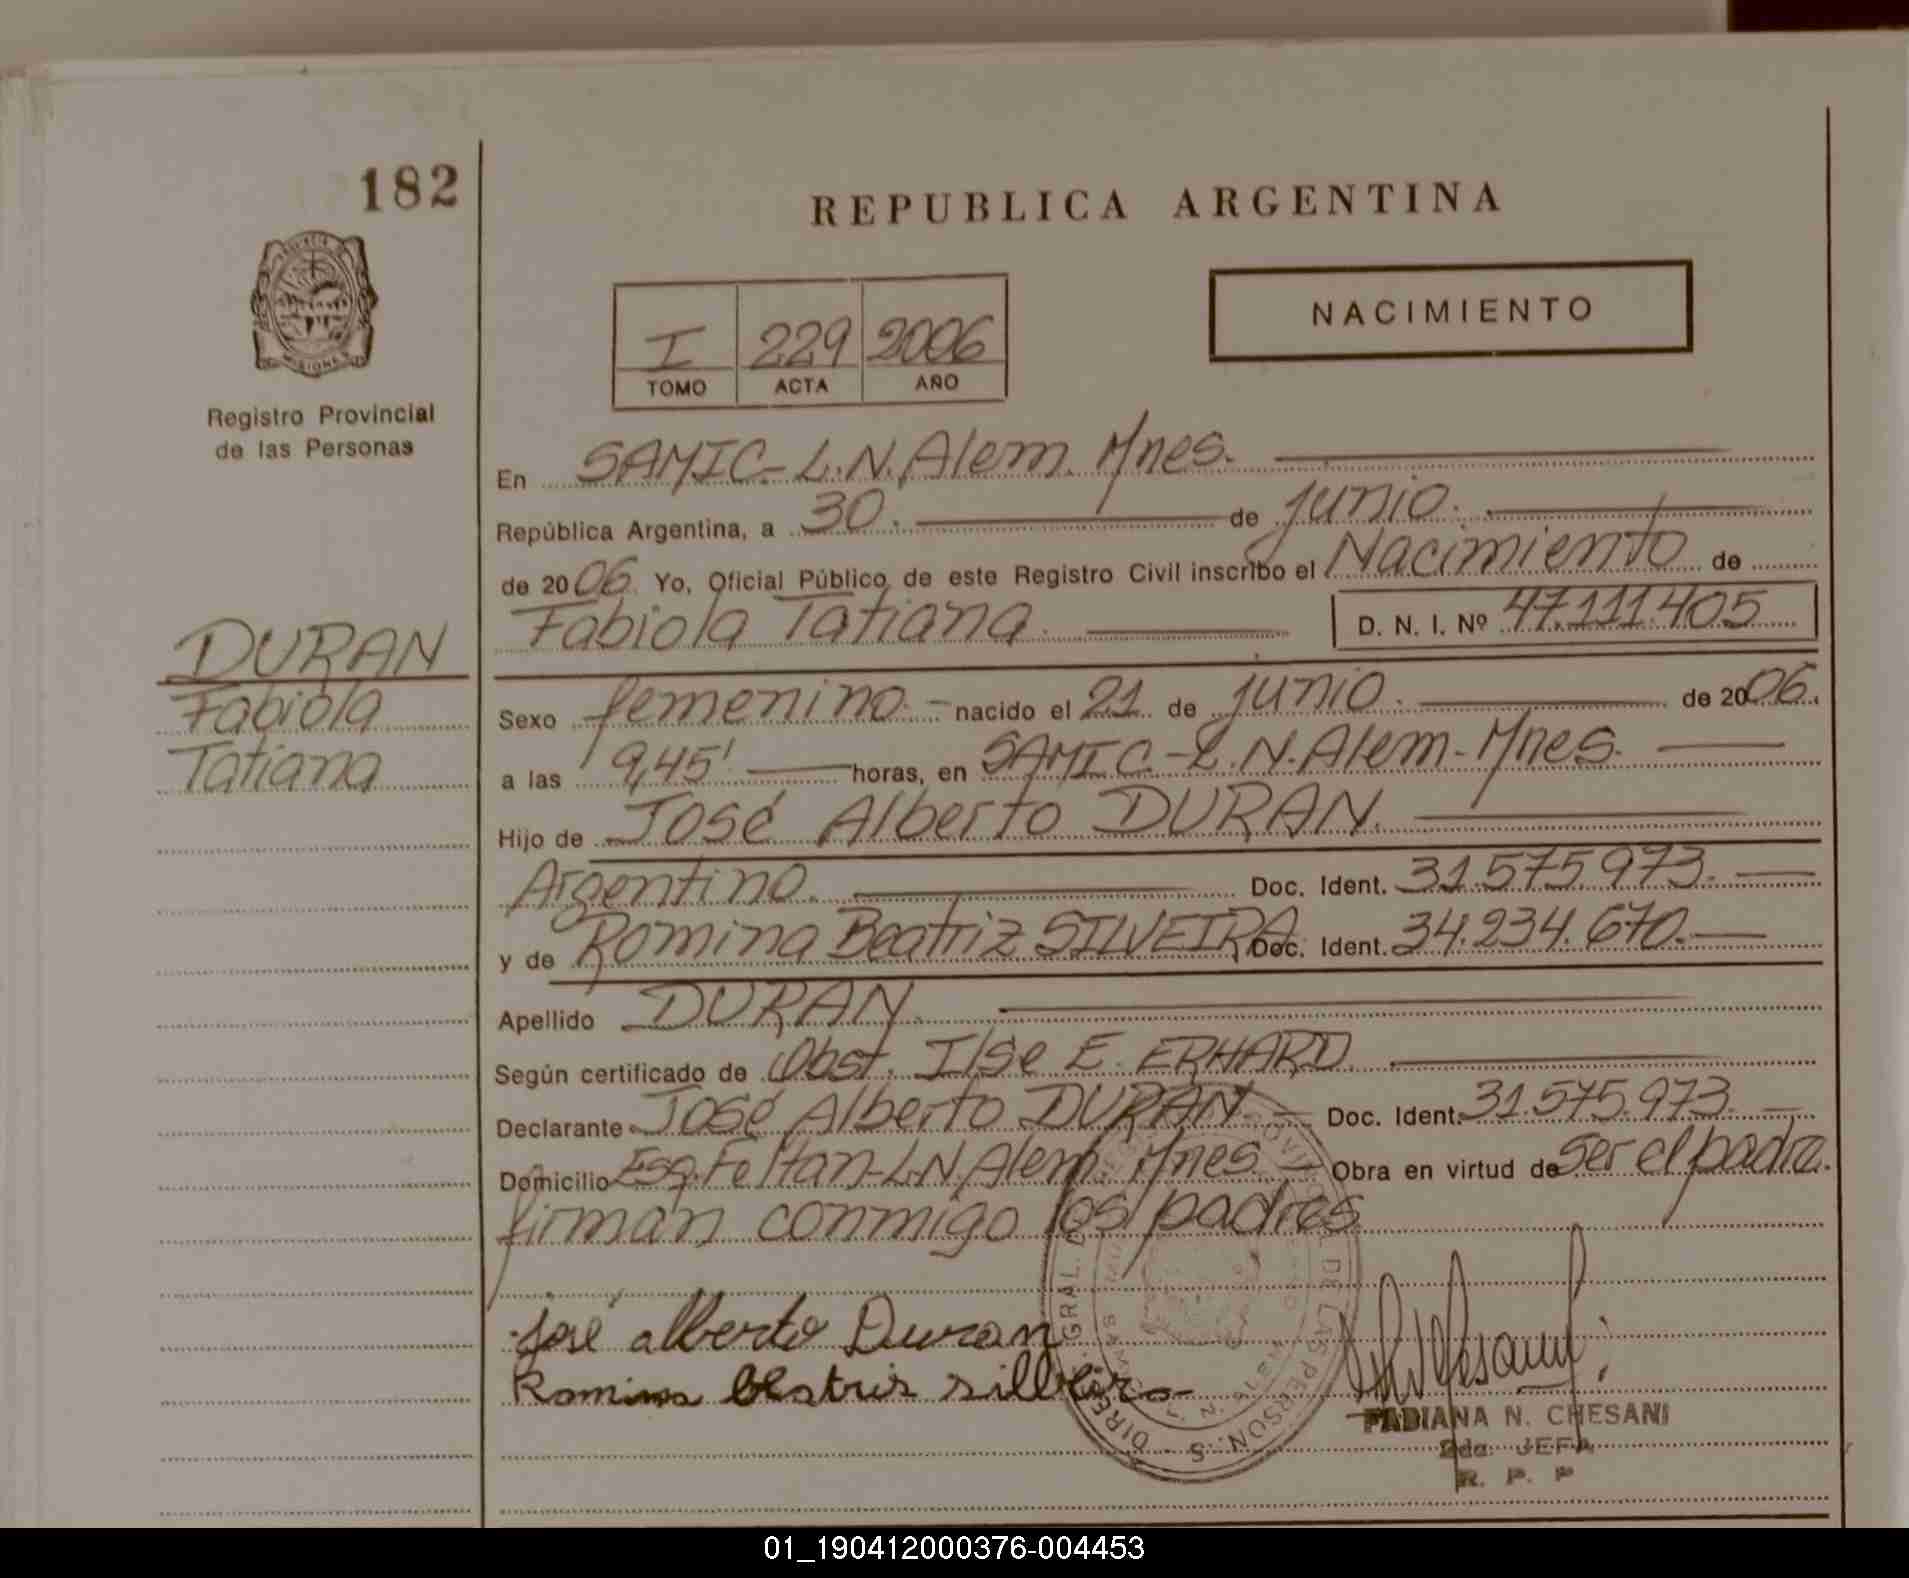 182
REPUBLICA ARGENTINA
MISIONES
Registro Provincial
de las Personas
NACIMIENTO
I 229 2006
TOMO ACTA AÑO
En SAMIC.- L.N. Alem. Mnes.
República Argentina, a 30. de junio.
de 2006. Yo, Oficial Público de este Registro Civil inscribo el Nacimiento de
Fabiola Tatiana. D. N. I. Nº 47.111.405
DURAN
Fabiola
Tatiana
Sexo femenino.- nacido el 21 de junio. de 2006.
a las 9,45' horas, en SAMIC.-L.N. Alem- Mnes.
Hijo de José Alberto DURAN.
Argentino. Doc. Ident. 31.575.973.
y de Romina Beatriz SILVEIRA Doc. Ident. 34.234.670.
Apellido DURAN.
Según certificado de Obst. Ilse E. ERHARD.
Declarante José Alberto DURAN Doc. Ident. 31.575.973.
Domicilio Esq. Feltan-L.N. Alem Mnes. Obra en virtud de ser el padre.
firman conmigo los padres
José alberto Duran
Romina beatris silbeira
FABIANA N. CHESANI
2da. JEFA
R. P. P
01_190412000376-004453